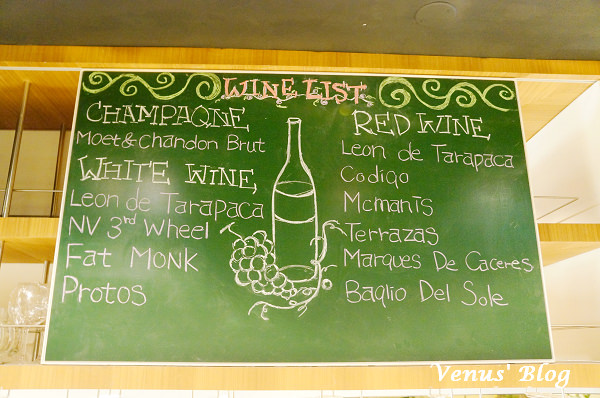 WINE LIST
CHAMPAGNE
Moet & Chandon Brut
WHITE WINE
Leon de Tarapaca
NV 3rd Wheel
Fat Monk
Protos
RED WINE
Leon de Tarapaca
Codigo
Mcmanis
Terrazas
Marques De Caceres
Baglio Del Sole
Venus' Blog